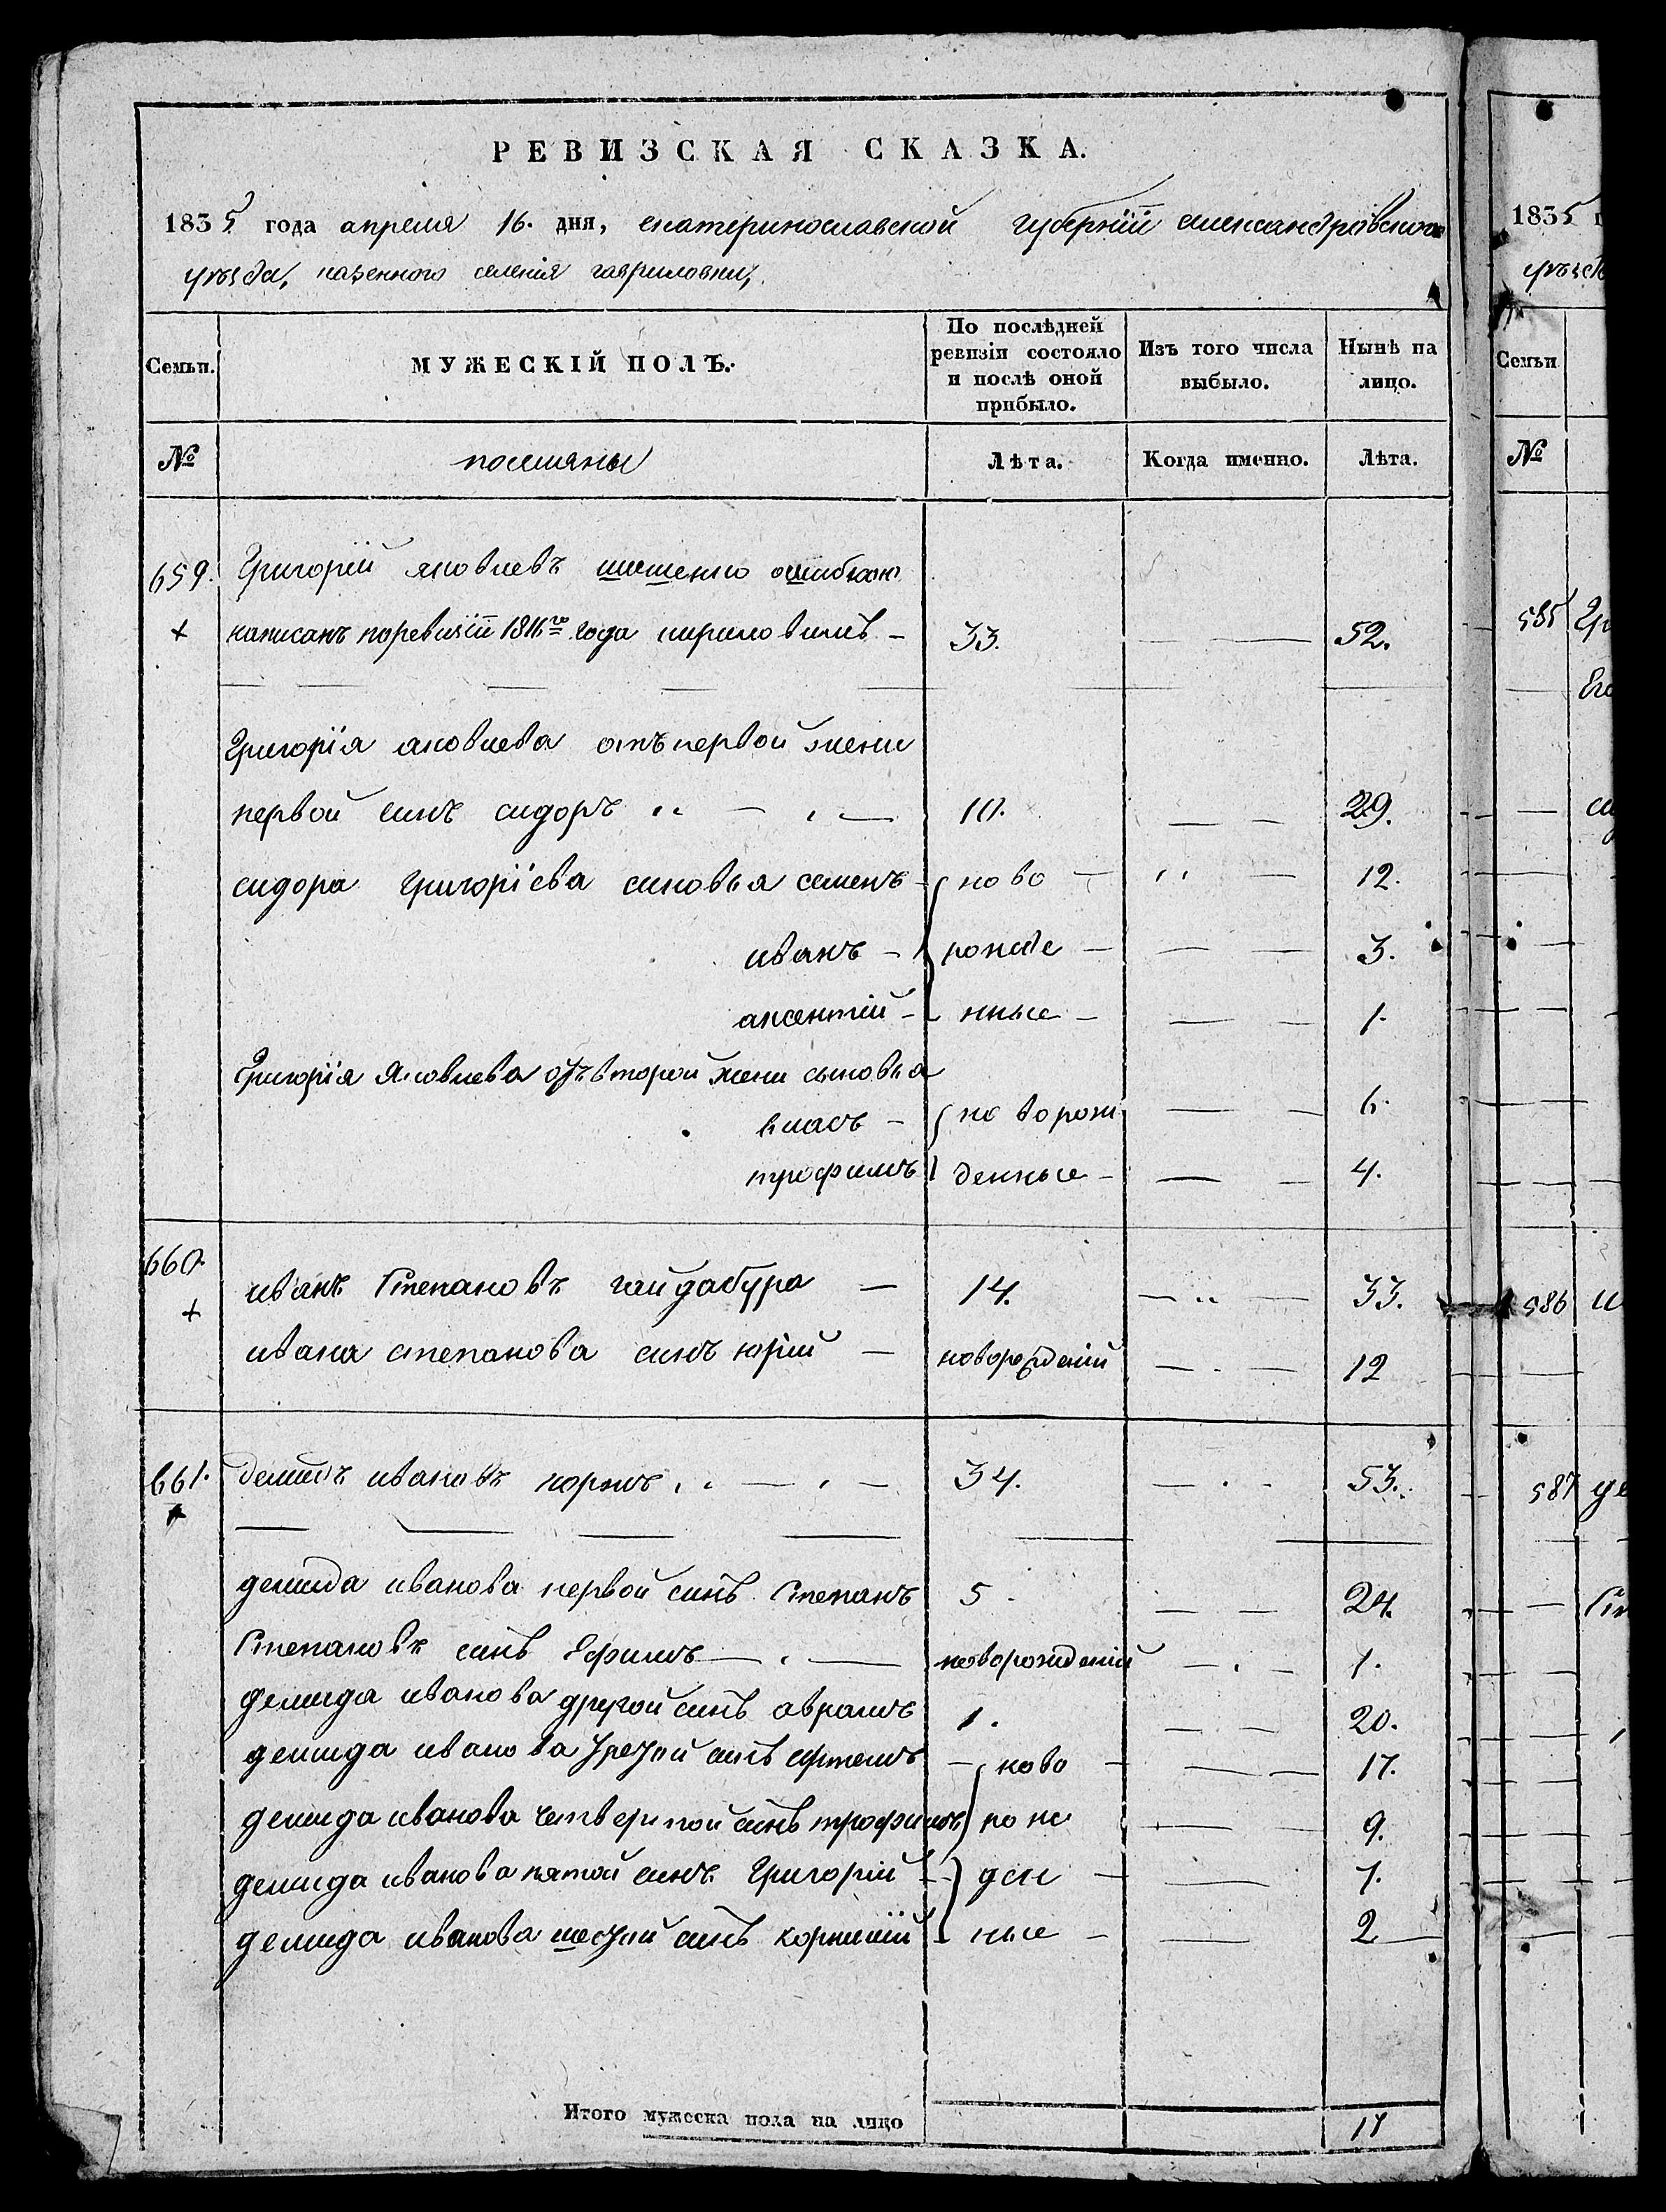 РЕВИЗСКАЯ СКАЗКА.
1835 года апреля 16. дня, екатеринославской губерніи александровского
уѣзда, казенного селенія гавриловки,
Семьи.
МУЖЕСКІЙ ПОЛЪ.
По послѣдней ревизіи состояло и послѣ оной прибыло.
Изъ того числа выбыло.
Нынѣ на лицо.
№ поселяны Лѣта. Когда именно. Лѣта.
659. Григорій яковлевъ ошибкою
написанъ поревизіи 1816го года кириловимъ 33. 52.
Григорія яковлева отъ первой жени
первой синъ сидоръ 10. 29.
сидора григоріева синовья семенъ ново 12.
иванъ рожде 3.
аксентій нные 1.
Григорія Яковлева отъ второй жени сыновья
власъ ново рож 6.
трофимъ денные 4.
660. иванъ Степановъ гайдабура 14. 33.
ивана степанова синъ юрій новорожденій 12
661. демидъ ивановъ коржъ 34. 53.
демида иванова первой синъ Степанъ 5 24.
Степановъ синъ Ефимъ новорожденій 1.
демида иванова другой синъ аврамъ 1. 20.
демида иванова третой синъ артемъ ново 17.
демида иванова четвертой синъ трофимъ рож 9.
демида иванова пятой синъ Григорій ден 7.
демида иванова шестой синъ корнилій ные 2
Итого мужеска пола на лицо 17
1835
уѣзд
Семьи
№
585 Гр
Его
си
586 и
587 де
Сте